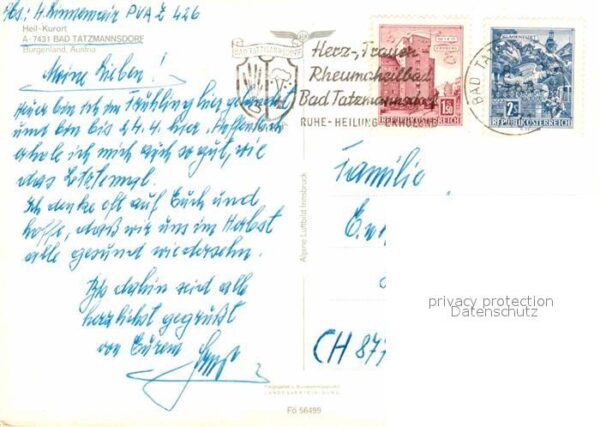 Abs: H. PVA Z 426
Heil-Kurort
A-7431 BAD TATZMANNSDORF
Burgenland, Austria
Meine Lieben!
Heuer bin ich im Frühling hier
und bin bis 24. 4. hier. Hoffentlich
erhole ich mich auch so gut, wie
das Letztemal.
Ich denke oft auf Euch und
hoffe, daß wir uns im Herbst
alle gesund wiedersehn.
Bis dahin seid alle
herzlichst gegrüßt
von Eurem
BAD TATZMANNSDORF
Herz-, Frauen-
Rheumaheilbad
Bad Tatzmannsdorf
RUHE - HEILUNG - ERHOLUNG
1.80
REPUBLIK ÖSTERREICH
2S
REPUBLIK ÖSTERREICH
BAD TAT
Alpine Luftbild Innsbruck
Familie
CH 877
privacy protection
Datenschutz
Fö 56499